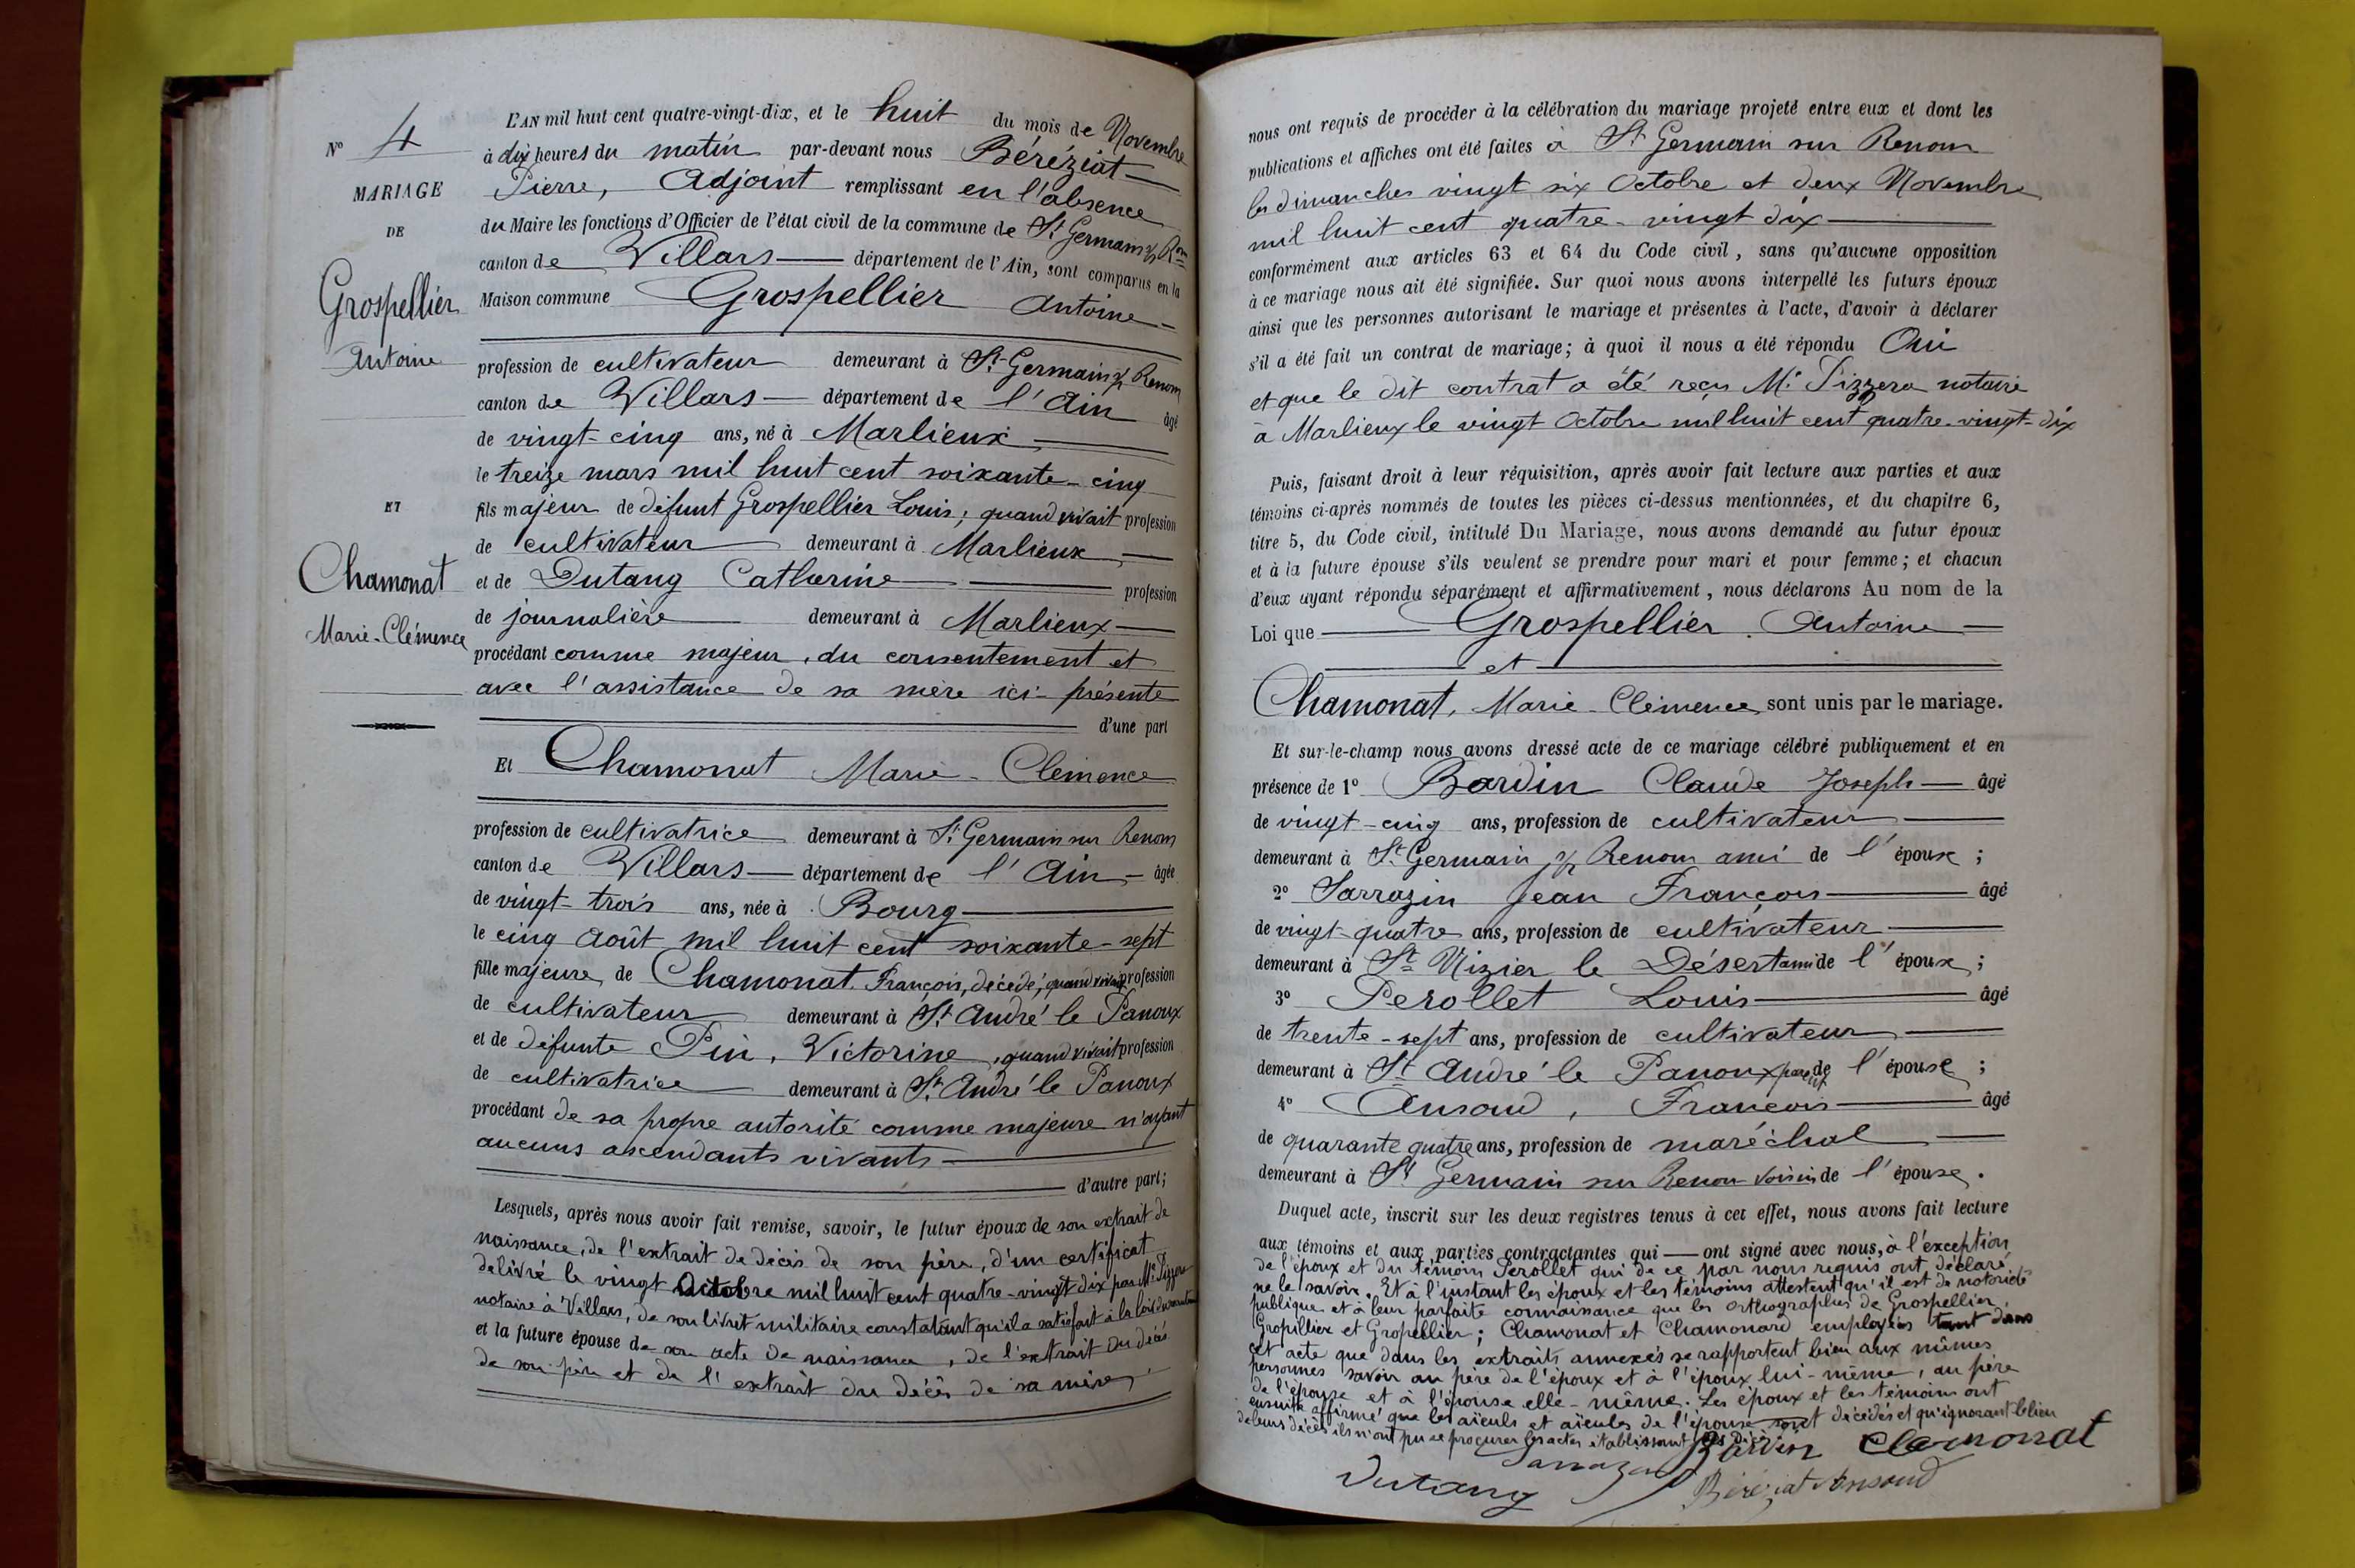 N° 4
MARIAGE
DE
Grospellier
Antoine
ET
Chamonat
Marie-Clémence
L'AN mil huit cent quatre-vingt-dix, et le huit du mois de Novembre
à dix heures du matin par-devant nous Béréziat
Pierre, Adjoint remplissant en l'absence
du Maire les fonctions d'Officier de l'état civil de la commune de St Germain s/ Ron
canton de Villars département de l'Ain, sont comparus en la
Maison commune Grospellier Antoine
profession de cultivateur demeurant à St Germain s/ Renom
canton de Villars département de l'Ain âgé
de vingt-cinq ans, né à Marlieux
le treize mars mil huit cent soixante-cinq
fils majeur de défunt Grospellier Louis, quand vivait profession
de cultivateur demeurant à Marlieux
et de Dutang Catherine profession
de journalière demeurant à Marlieux
procédant comme majeur, du consentement et
avec l'assistance de sa mère ici-présente
d'une part
Et Chamonat Marie-Clémence
profession de cultivatrice demeurant à St Germain sur Renom
canton de Villars département de l'Ain âgée
de vingt-trois ans, née à Bourg
le cinq Août mil huit cent soixante-sept
fille majeure de Chamonat François, décédé, quand vivait profession
de cultivateur demeurant à St André le Panoux
et de défunte Pin, Victorine, quand vivait profession
de cultivatrice demeurant à St André le Panoux
procédant de sa propre autorité comme majeure n'ayant
aucuns ascendants vivants
d'autre part;
Lesquels, après nous avoir fait remise, savoir, le futur époux de son extrait de
naissance, de l'extrait de décès de son père, d'un certificat
délivré le vingt Octobre mil huit cent quatre-vingt dix par Me Pizzera
notaire à Villars, de son livret militaire constatant qu'il a satisfait à la loi du recrutement
et la future épouse de son acte de naissance, de l'extrait du décès
de son père et de l'extrait du décès de sa mère,
nous ont requis de procéder à la célébration du mariage projeté entre eux et dont les
publications et affiches ont été faites à St Germain sur Renom
les dimanches vingt six Octobre et deux Novembre
mil huit cent quatre-vingt dix
conformément aux articles 63 et 64 du Code civil, sans qu'aucune opposition
à ce mariage nous ait été signifiée. Sur quoi nous avons interpellé les futurs époux
ainsi que les personnes autorisant le mariage et présentes à l'acte, d'avoir à déclarer
s'il a été fait un contrat de mariage; à quoi il nous a été répondu Oui
et que le dit contrat a été reçu Me Pizzera notaire
à Marlieux le vingt Octobre mil huit cent quatre-vingt-dix
Puis, faisant droit à leur réquisition, après avoir fait lecture aux parties et aux
témoins ci-après nommés de toutes les pièces ci-dessus mentionnées, et du chapitre 6,
titre 5, du Code civil, intitulé Du Mariage, nous avons demandé au futur époux
et à la future épouse s'ils veulent se prendre pour mari et pour femme; et chacun
d'eux ayant répondu séparément et affirmativement, nous déclarons Au nom de la
Loi que Grospellier Antoine
et
Chamonat, Marie-Clémence sont unis par le mariage.
Et sur-le-champ nous avons dressé acte de ce mariage célébré publiquement et en
présence de 1° Bardin Claude Joseph âgé
de vingt-cinq ans, profession de cultivateur
demeurant à St Germain s/ Renom ami de l'époux;
2° Sarrazin Jean François âgé
de vingt-quatre ans, profession de cultivateur
demeurant à St Nizier le Désert ami de l'époux;
3° Perollet Louis âgé
de trente-sept ans, profession de cultivateur
demeurant à St André le Panoux parent de l'épouse;
4° Ansoud, François âgé
de quarante quatre ans, profession de maréchal
demeurant à St Germain sur Renom voisin de l'épouse.
Duquel acte, inscrit sur les deux registres tenus à cet effet, nous avons fait lecture
aux témoins et aux parties contractantes qui ont signé avec nous, à l'exception
de l'époux et du témoin Perollet qui de ce par nous requis ont déclaré
ne le savoir. Et à l'instant les époux et les témoins attestent qu'il est de notoriété
publique et à leur parfaite connaissance que les orthographes de Grospellier,
Gropillier et Gropellier; Chamonat et Chamonard employés tant dans
cet acte que dans les extraits annexés se rapportent bien aux mêmes
personnes savoir au père de l'époux et à l'époux lui-même, au père
de l'épouse et à l'épouse elle-même. Les époux et les témoins ont
ensuite affirmé que les aïeuls et aïeules de l'épouse sont décédés et qu'ignorant le lieu
de leurs décès ils n'ont pu se procurer les actes établissant les décès
Bardin Chamonat
Sarrazin
Dutang Béréziat Ansoud